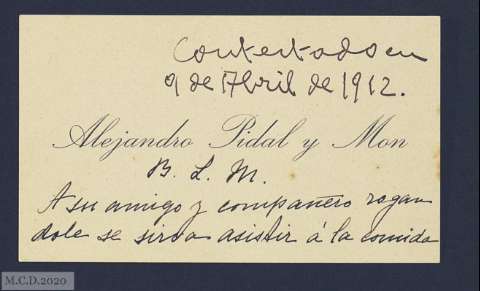 Contestado en
9 de Abril de 1912.
Alejandro Pidal y Mon
B. L. M.
A su amigo y compañero rogan
dole se sirva asistir á la comida
M.C.D.2020